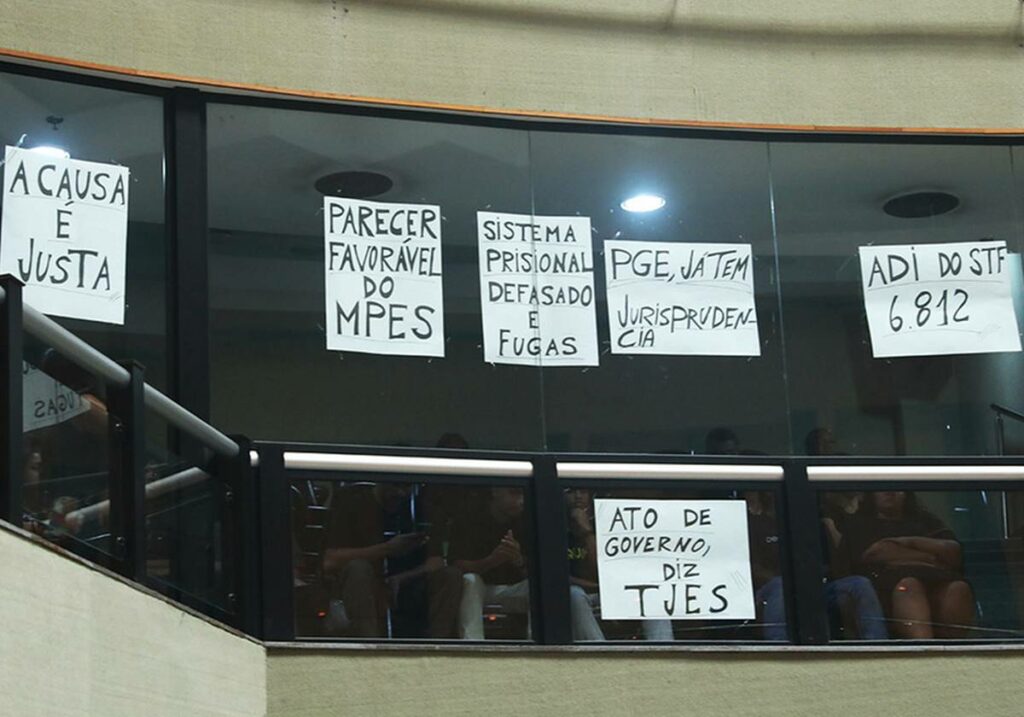 A CAUSA
É
JUSTA
PARECER
FAVORÁVEL
DO
MPES
SISTEMA
PRISIONAL
DEFASADO
E
FUGAS
PGE, JÁ TEM
JURISPRUDEN-
CIA
ADI DO STF
6.812
ATO DE
GOVERNO,
DIZ
TJES
FUGAS